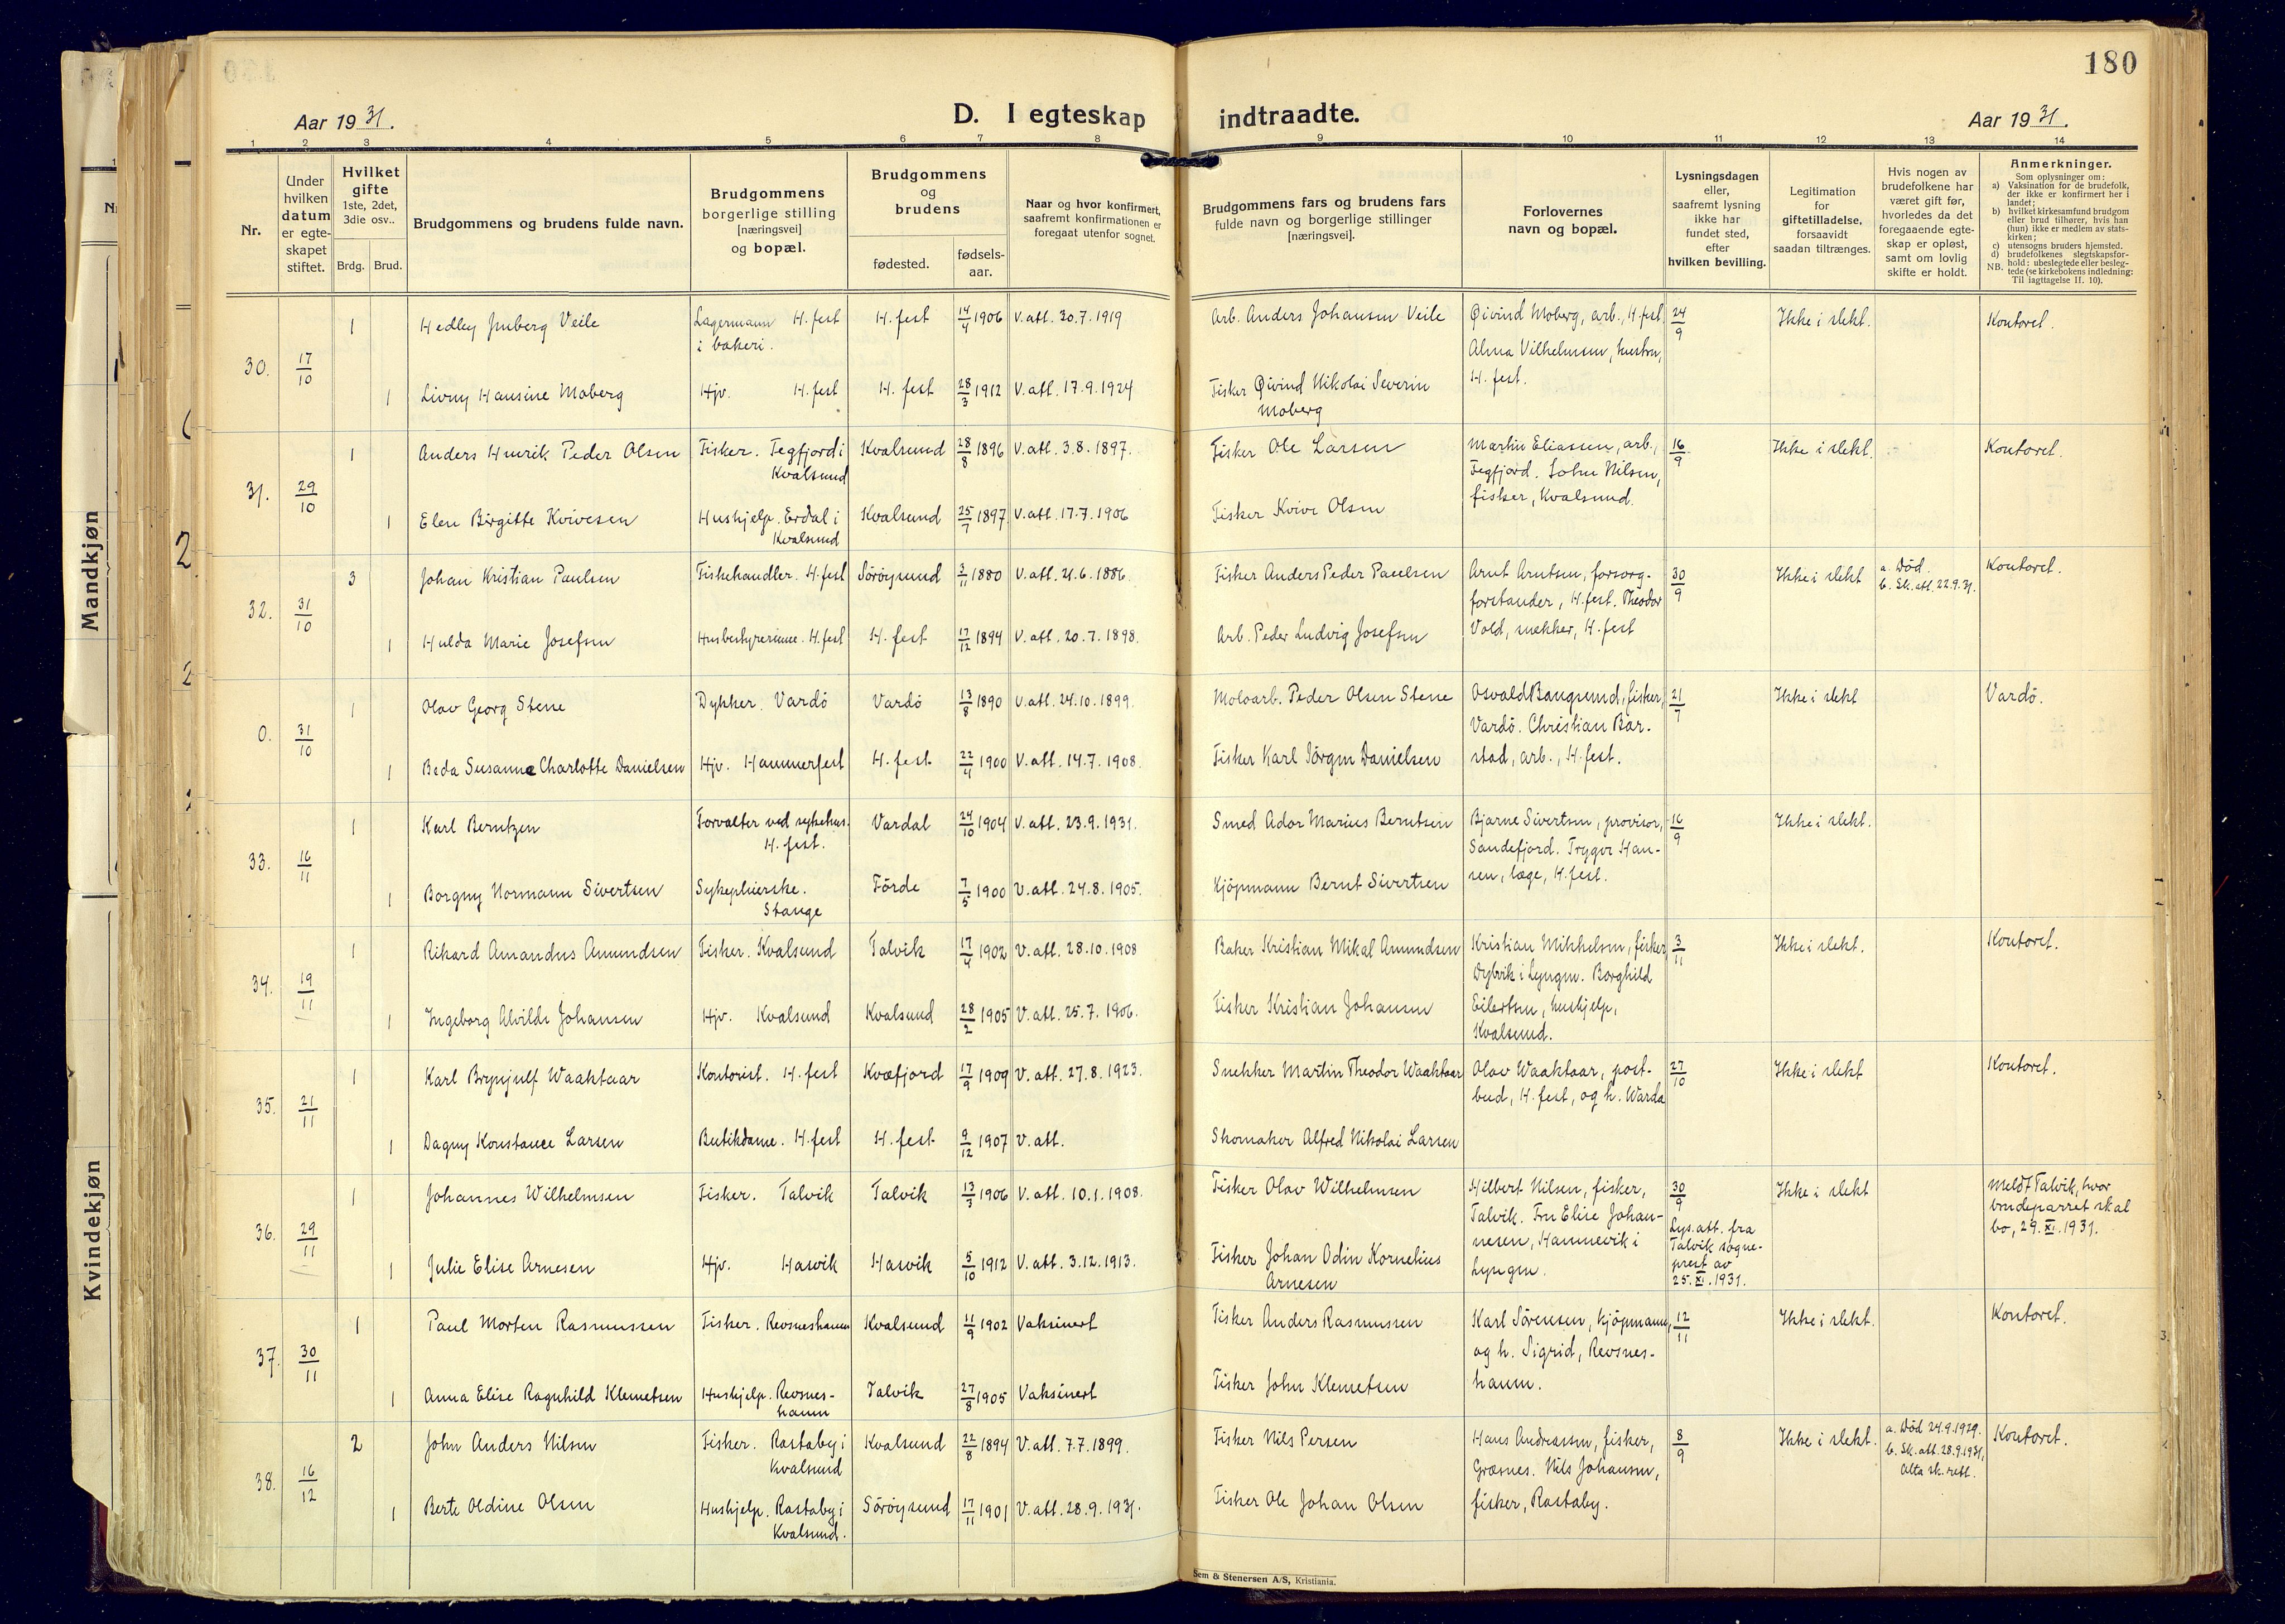 180
Aar 1931.
D. I egteskap indtraadte.
Aar 1931.
1 2 3 4 5 6 7 8 9 10 11 12 13 14
Nr.
Under hvilken datum er egte-skapet stiftet.
Hvilket gifte 1ste, 2det, 3die osv..
Brdg. Brud.
Brudgommens og brudens fulde navn.
Brudgommens borgerlige stilling [næringsvei] og bopæl.
Brudgommens og brudens
fødested.
fødsels-aar.
Naar og hvor konfirmert, saafremt konfirmationen er foregaat utenfor sognet.
Brudgommens fars og brudens fars fulde navn og borgerlige stillinger [næringsvei].
Forlovernes navn og bopæl.
Lysningsdagen eller, saafremt lysning ikke har fundet sted, efter hvilken bevilling.
Legitimation for giftetilladelse, forsaavidt saadan tiltrænges.
Hvis nogen av brudefolkene har været gift før, hvorledes da det foregaaende egte-skap er opløst, samt om lovlig skifte er holdt.
Anmerkninger.
Som oplysninger om:
a) Vaksination for de brudefolk, der ikke er konfirmert her i landet;
b) hvilket kirkesamfund brudgom eller brud tilhører, hvis han (hun) ikke er medlem av stats-kirken;
c) utensogns bruders hjemsted.
d) brudefolkenes slegtskapsfor-hold: ubeslegtede eller besleg-tede (se kirkebokens indledning: Til iagttagelse II. 10).
NB.
30. 17/10
1 Hedley Juberg Veile Lagermann H.fest i bakeri. H.fest 14/4 1906 V.att. 30.7.1919 Arb. Anders Johansen Veile Øivind Moberg, arb., H.fest 24/9 Ikke i slekt. Kontoret.
Alma Vilhelmsen, hustru, H.fest.
1 Livny Hansine Moberg Hjv. H.fest H.fest 28/3 1912 V.att. 17.9.1924 Fisker Øivind Nikolai Severin Moberg
31. 29/10
1 Anders Henrik Peder Olsen Fisker. Tegfjord i Kvalsund Kvalsund 28/8 1896 V.att. 3.8.1897. Fisker Ole Larsen Martin Eliassen, arb., Tegfjord. John Nilsen, fisker, Kvalsund. 16/9 Ikke i slekt. Kontoret.
1 Elen Birgitte Kvivesen Hushjelp. Erdal i Kvalsund Kvalsund 25/7 1897 V.att. 17.7.1906 Fisker Kvive Olsen
32. 31/10
3 Johan Kristian Paulsen Fiskehandler. H.fest Söröysund 3/11 1880 V.att. 21.6.1886. Fisker Anders Peder Paulsen Arnt Arntsen, forsorg-forstander, H.fest. Theodor Vold, snekker, H.fest 30/9 Ikke i slekt a. Död. b. Sk. att. 22.9.31. Kontoret.
1 Hulda Marie Josefsen Husbestyrerinne. H.fest H.fest 17/12 1894 V.att. 20.7.1898. Arb. Peder Ludvig Josefsen
0. 31/10
1 Olav Georg Stene Dykker. Vardö Vardö 13/8 1890 V.att. 24.10.1899. Moloarb. Peder Olsen Stene Osvald Bangsund, fisker, Vardö. Christian Bar-stad, arb., H.fest. 21/7 Ikke i slekt Vardö.
1 Beda Susanne Charlotte Danielsen Hjv. Hammerfest H.fest 22/4 1900 V.att. 14.7.1908. Fisker Karl Jörgen Danielsen
33. 16/11
1 Karl Berntzen Forvalter ved sykehus. H.fest. Vardal 24/10 1904 V.att. 23.9.1931. Smed Ador Marius Berntsen Bjarne Sivertsen, provisor, Sandefjord. Trygve Han-sen, læge, H.fest. 16/9 Ikke i slekt.
1 Borgny Normann Sivertsen Sykepleierske. Stange Förde 7/5 1900 V.att. 24.8.1905. Kjöpmann Bernt Sivertsen
34. 19/11
1 Rikard Amandus Amundsen Fisker. Kvalsund Talvik 17/4 1902 V.att. 28.10.1908 Baker Kristian Mikal Amundsen Kristian Mikkelsen, fisker, Dybvik i Lyngen. Borghild Eilertsen, hushjelp, Kvalsund. 3/11 Ikke i slekt. Kontoret.
1 Ingeborg Alvilde Johansen Hjv. Kvalsund Kvalsund 28/2 1905 V.att. 25.7.1906. Fisker Kristian Johansen
35. 21/11
1 Karl Brynjulf Waaktaar Kontorist. H.fest Kvæfjord 17/9 1909 V.att. 27.8.1923. Snekker Martin Theodor Waaktaar Olav Waaktaar, post-bud, H.fest, og h. Warda 27/10 Ikke i slekt Kontoret.
1 Dagny Konstance Larsen Butikdame. H.fest H.fest 9/12 1907 V.att. Skomaker Alfred Nikolai Larsen
36. 29/11
1 Johannes Wilhelmsen Fisker. Talvik Talvik 13/3 1906 V.att. 10.1.1908. Fisker Olav Wilhelmsen Hilbert Nilsen, fisker, Talvik. Fru Elise Johan-nesen, Hamnevik i Lyngen. 30/9 Lys.att. fra Talvik sogne-prest av 25.XI.1931. Ikke i slekt Meldt Talvik, hvor brudeparret skal bo, 29.XI.1931.
1 Julie Elise Arnesen Hjv. Hasvik Hasvik 5/10 1912 V.att. 3.12.1913. Fisker Johan Odin Kornelius Arnesen
37. 30/11
1 Paul Morten Rasmussen Fisker. Revsneshamn Kvalsund 11/9 1902 Vaksinert Fisker Anders Rasmussen Karl Sörensen, kjöpmann, og h. Sigrid, Revsnes-hamn. 12/11 Ikke i slekt. Kontoret.
1 Anna Elise Ragnhild Klemetsen Hushjelp. Revsnes-hamn Talvik 27/8 1905 Vaksinert Fisker John Klemetsen
38. 16/12
2 John Anders Nilsen Fisker. Rastaby i Kvalsund Kvalsund 22/8 1894 V.att. 7.7.1899. Fisker Nils Persen Hans Andreassen, fisker, Græsnes. Nils Johansen, fisker, Rastaby. 8/9 Ikke i slekt. a. Död 24.9.1929. b. Sk.att. 28.9.1931, Alta sk.rett. Kontoret.
1 Berte Oldine Olsen Hushjelp. Rastaby i Kvalsund. Söröysund 17/11 1901 V.att. 28.9.1931. Fisker Ole Johan Olsen
Sem & Stenersen A/S, Kristiania.
Mandkjøn
Kvindekjøn